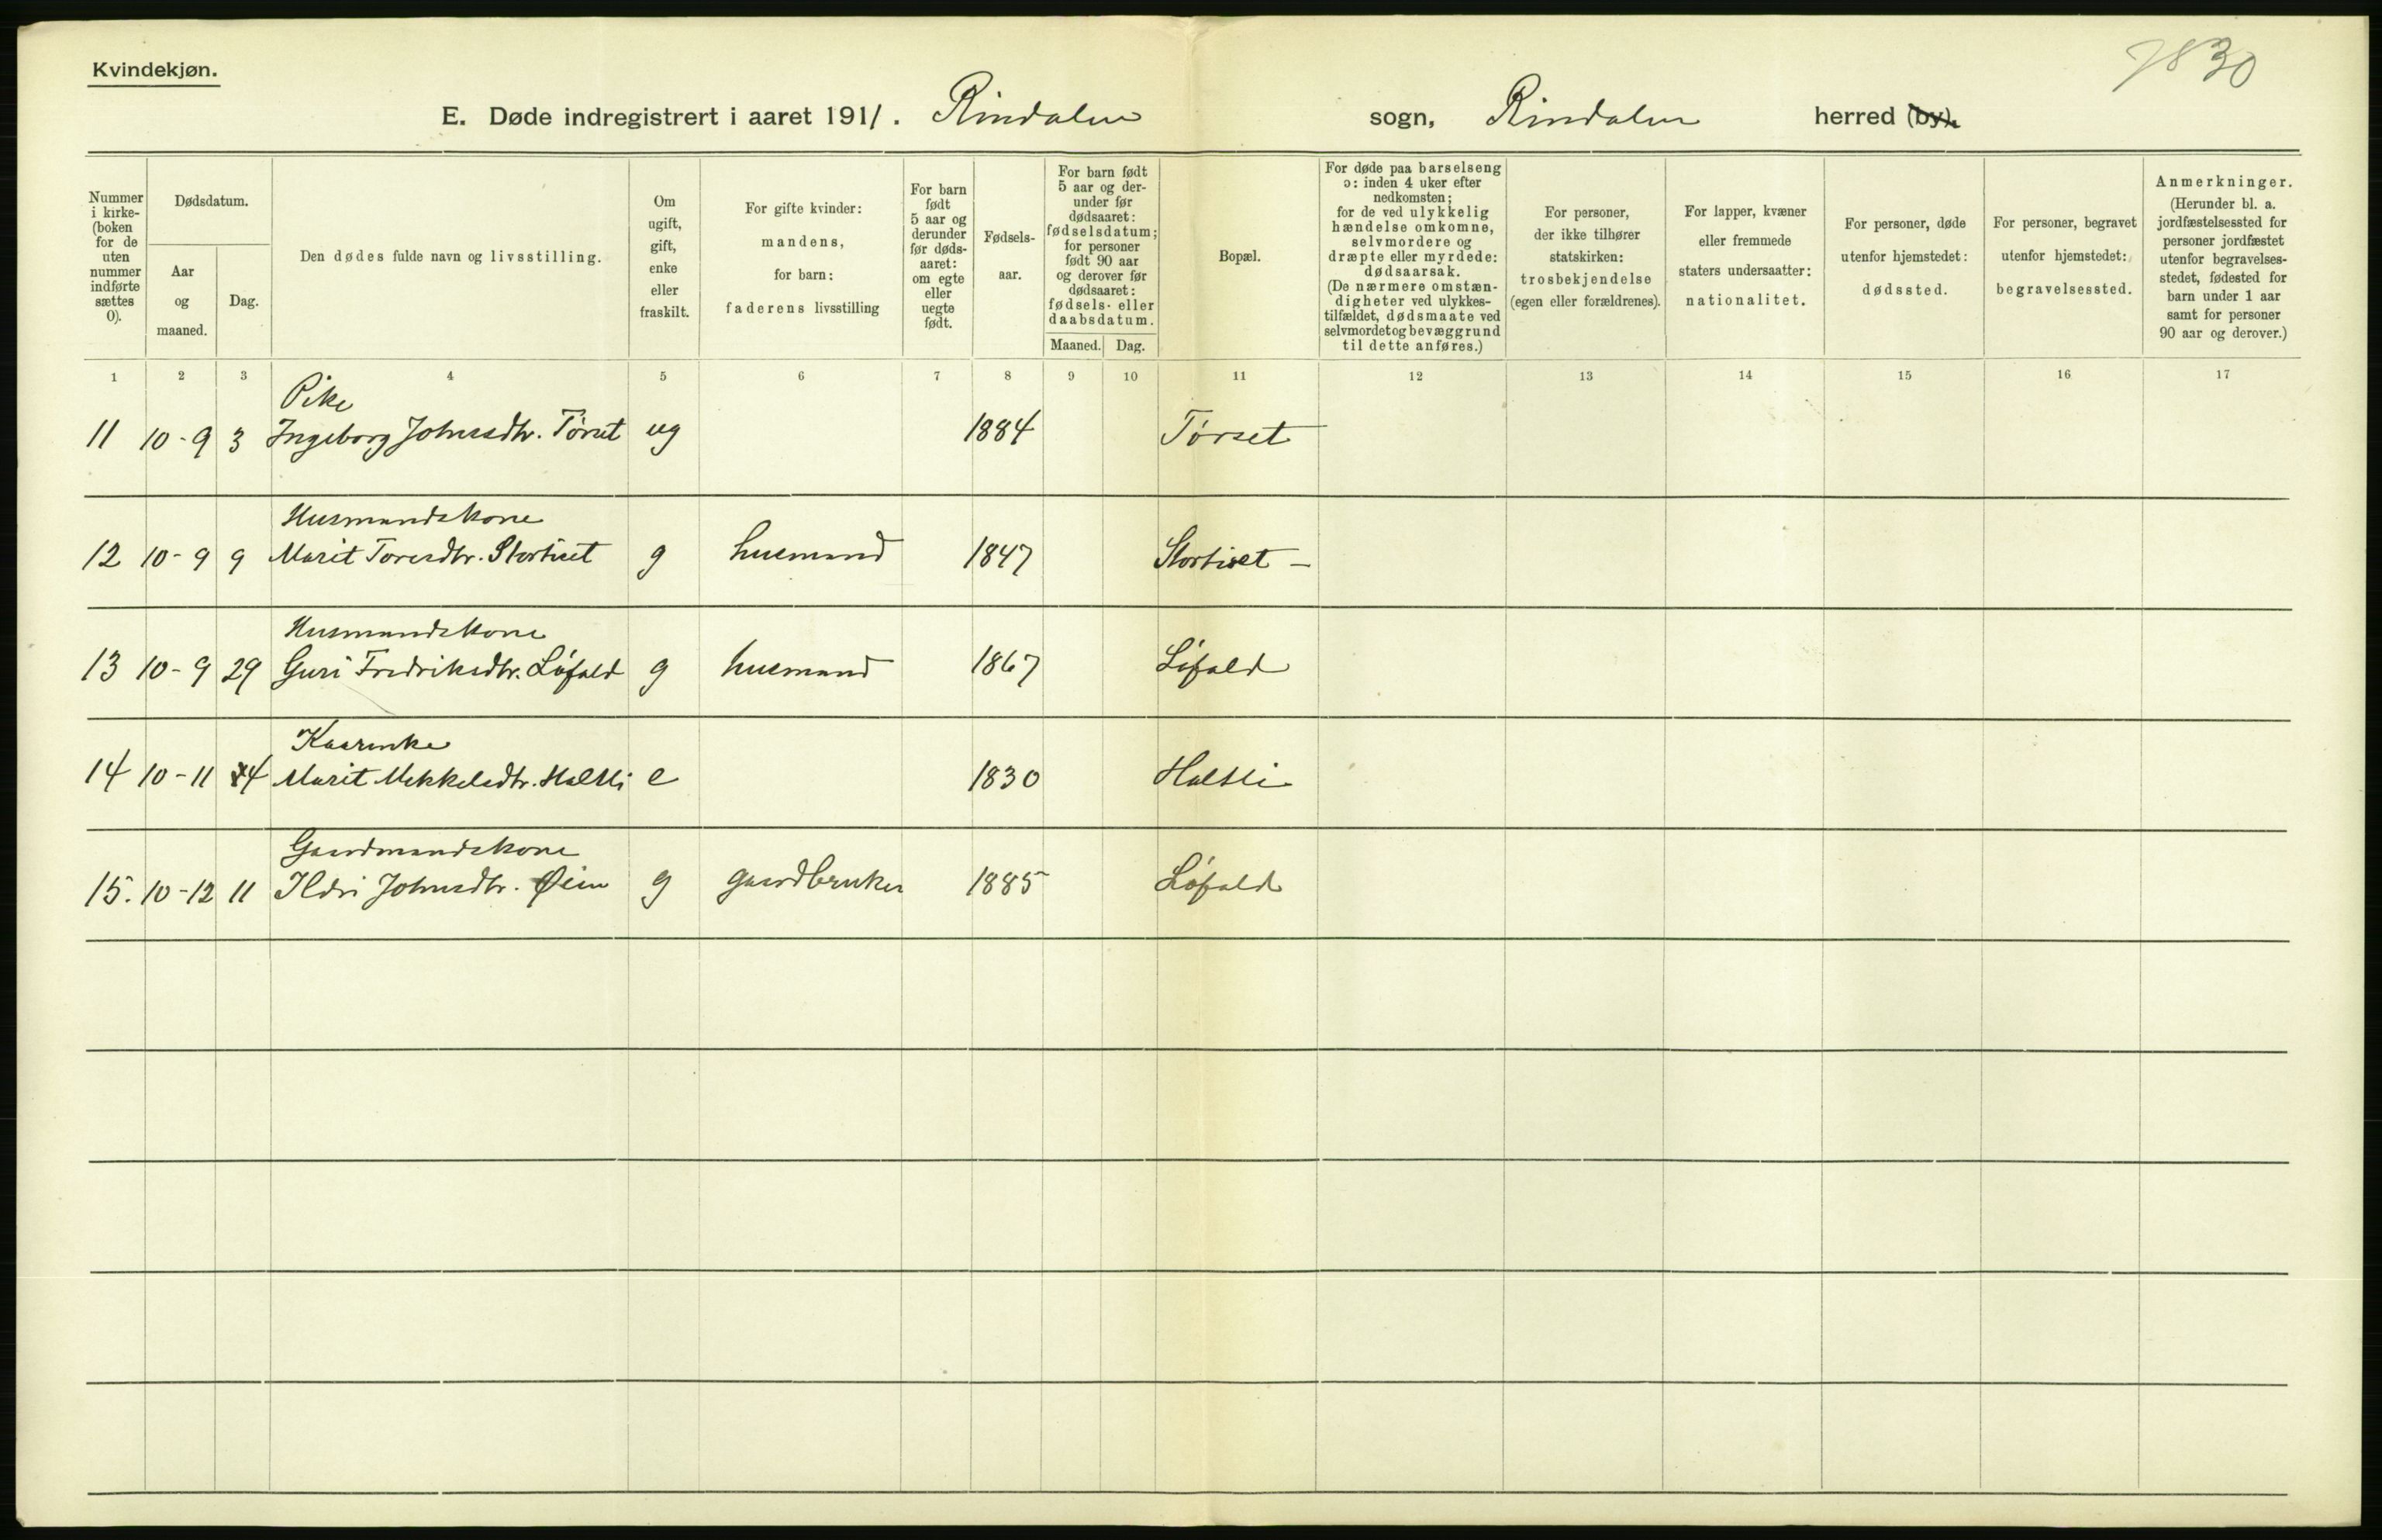 Kvindekjøn.
7830
E. Døde indregistrert i aaret 1911. Rindalen sogn, Rindalen herred (by).
Nummer i kirke- (boken for de uten nummer indførte sættes 0).
Dødsdatum.
Aar og maaned.
Dag.
Den dødes fulde navn og livsstilling.
Om ugift, gift, enke eller fraskilt.
For gifte kvinder: mandens, for barn: faderens livsstilling
For barn født 5 aar og derunder før døds- aaret: om egte eller uegte født.
Fødsels- aar.
For barn født 5 aar og der- under før dødsaaret: fødselsdatum; for personer født 90 aar og derover før dødsaaret: fødsels- eller daabsdatum.
Maaned.
Dag.
Bopæl.
For døde paa barselseng ɔ: inden 4 uker efter nedkomsten; for de ved ulykkelig hændelse omkomne, selvmordere og dræpte eller myrdede: dødsaarsak. (De nærmere omstæn- digheter ved ulykkes- tilfældet, dødsmaate ved selvmordet og bevæggrund til dette anføres.)
For personer, der ikke tilhører statskirken: trosbekjendelse (egen eller forældrenes).
For lapper, kvæner eller fremmede staters undersaatter: nationalitet.
For personer, døde utenfor hjemstedet: dødssted.
For personer, begravet utenfor hjemstedet: begravelsessted.
Anmerkninger. (Herunder bl. a. jordfæstelsessted for personer jordfæstet utenfor begravelses- stedet, fødested for barn under 1 aar samt for personer 90 aar og derover.)
1 2 3 4 5 6 7 8 9 10 11 12 13 14 15 16 17
Pike
11 10-9 3 Ingeborg Johnsdtr. Tørset ug 1884 Tørset
Husmandskone
12 10-9 9 Marit Toresdtr. Stortiset g husmand 1847 Stortiset -
Husmandskone
13 10-9 29 Guri Fredriksdtr. Løfald g husmand 1867 Løfald
Kaarenke
14 10-11 4 Marit Mikkelsdtr. Haltli e 1830 Haltli
Gaardmandskone
15. 10-12 11 Ildri Johnsdtr. Øien g gaardbruker 1885 Løfald